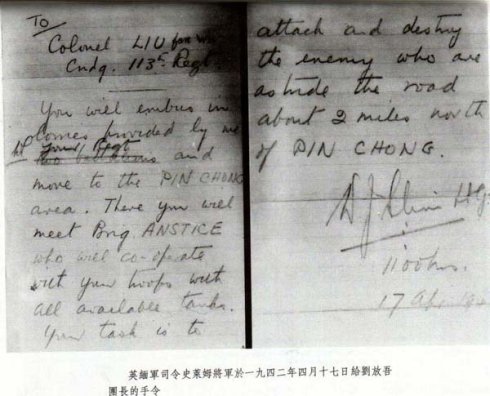 To
Colonel LIU fan wu
Cmdg. 113th Regt.
You will embus in
lorries provided by me
your Regt
two battalions and
move to the PIN CHONG
area. There you will
meet Brig ANSTICE
who will co-operate
with your troops with
all available tanks.
Your task is to
attack and destroy
the enemy who are
astride the road
about 2 miles north
of PIN CHONG.
W J Slim
1100 hrs.
17 Apr
英緬軍司令史萊姆將軍於一九四二年四月十七日給劉放吾
團長的手令